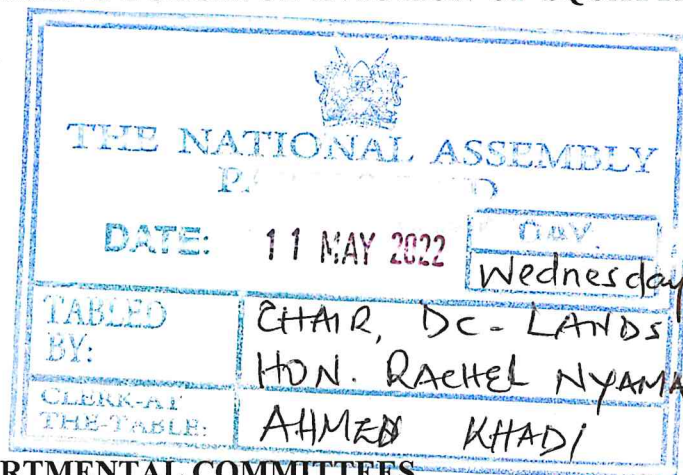 THE NATIONAL ASSEMBLY
DATE: 11 MAY 2022
DAY.
Wednesday
TABLED BY:
CHAIR, DC - LANDS
HON. RACHEL NYAMA
CLERK-AT THE-TABLE:
AHMED KHADI
RTMENTAL COMMITTEES